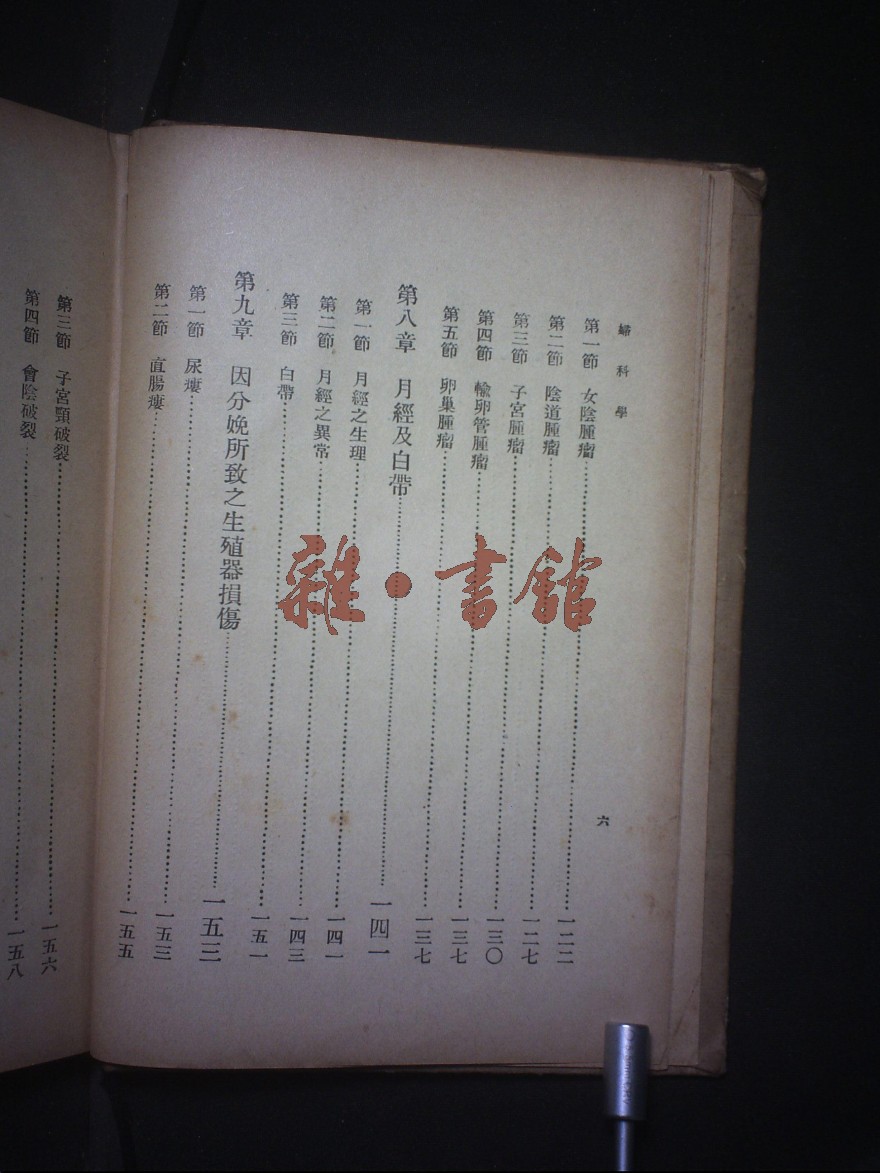 婦科學 六
第一節 女陰腫瘤……一二二
第二節 陰道腫瘤……一二七
第三節 子宮腫瘤……一三〇
第四節 輸卵管腫瘤……一三七
第五節 卵巢腫瘤……一三七
第八章 月經及白帶……一四一
第一節 月經之生理……一四一
第二節 月經之異常……一四三
第三節 白帶……一五一
第九章 因分娩所致之生殖器損傷……一五三
第一節 尿瘻……一五三
第二節 直腸瘻……一五五
第三節 子宮頸破裂……一五六
第四節 會陰破裂……一五八
雜·書館